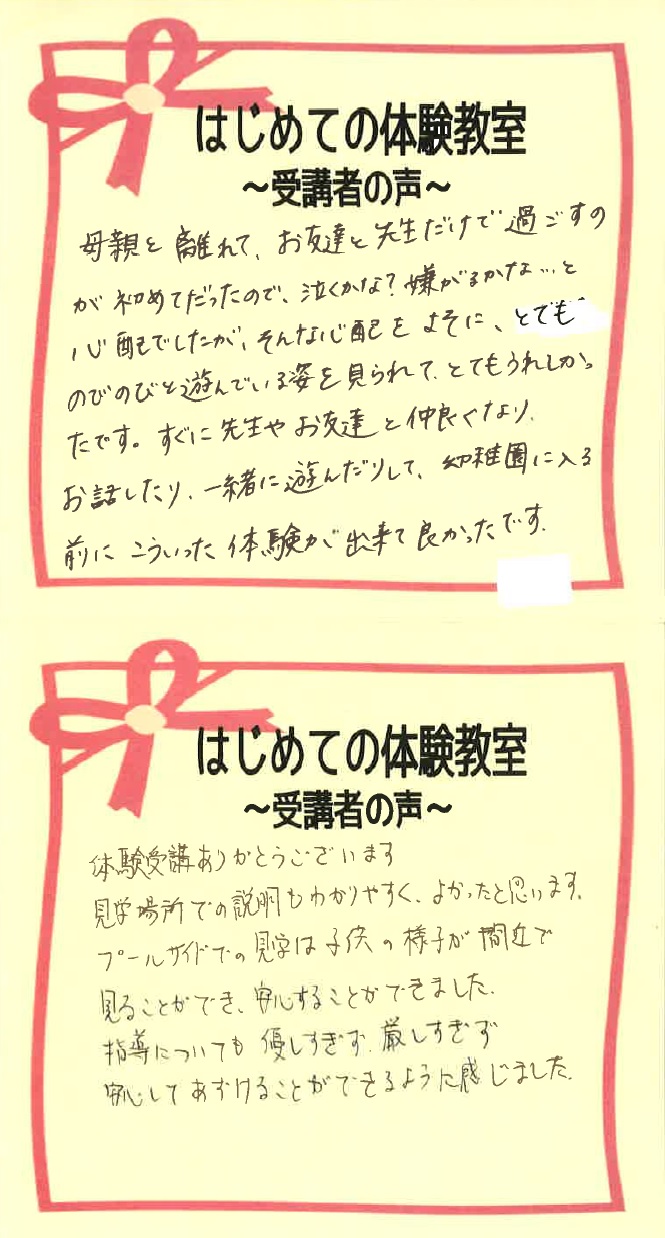 はじめての体験教室
～受講者の声～
母親と離れて、お友達と先生だけで過ごすの
が初めてだったので、泣くかな?嫌がるかな…と
心配でしたが、そんな心配をよそに、とても
のびのびと遊んでいる姿を見られて、とてもうれしかっ
たです。すぐに先生やお友達と仲良くなり、
お話したり、一緒に遊んだりして、幼稚園に入る
前にこういった体験が出来て良かったです。
はじめての体験教室
～受講者の声～
体験受講ありがとうございます
見学場所での説明もわかりやすく、よかったと思います。
プールサイドでの見学は子供の様子が間近で
見ることができ、安心することができました。
指導についても優しすぎず、厳しすぎず
安心してあずけることができるように感じました。